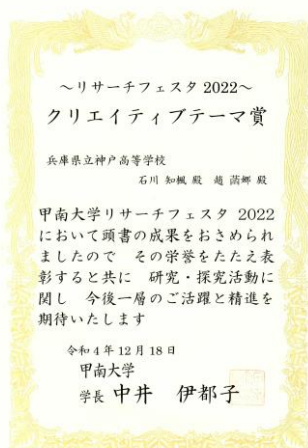 ～リサーチフェスタ 2022～
クリエイティブテーマ賞
兵庫県立神戸高等学校
石川 知楓 殿 趙 菡娜 殿
甲南大学リサーチフェスタ 2022
において頭書の成果をおさめられ
ましたので その栄誉をたたえ表
彰すると共に 研究・探究活動に
関し 今後一層のご活躍と精進を
期待いたします
令和4年12月18日
甲南大学
学長 中井 伊都子